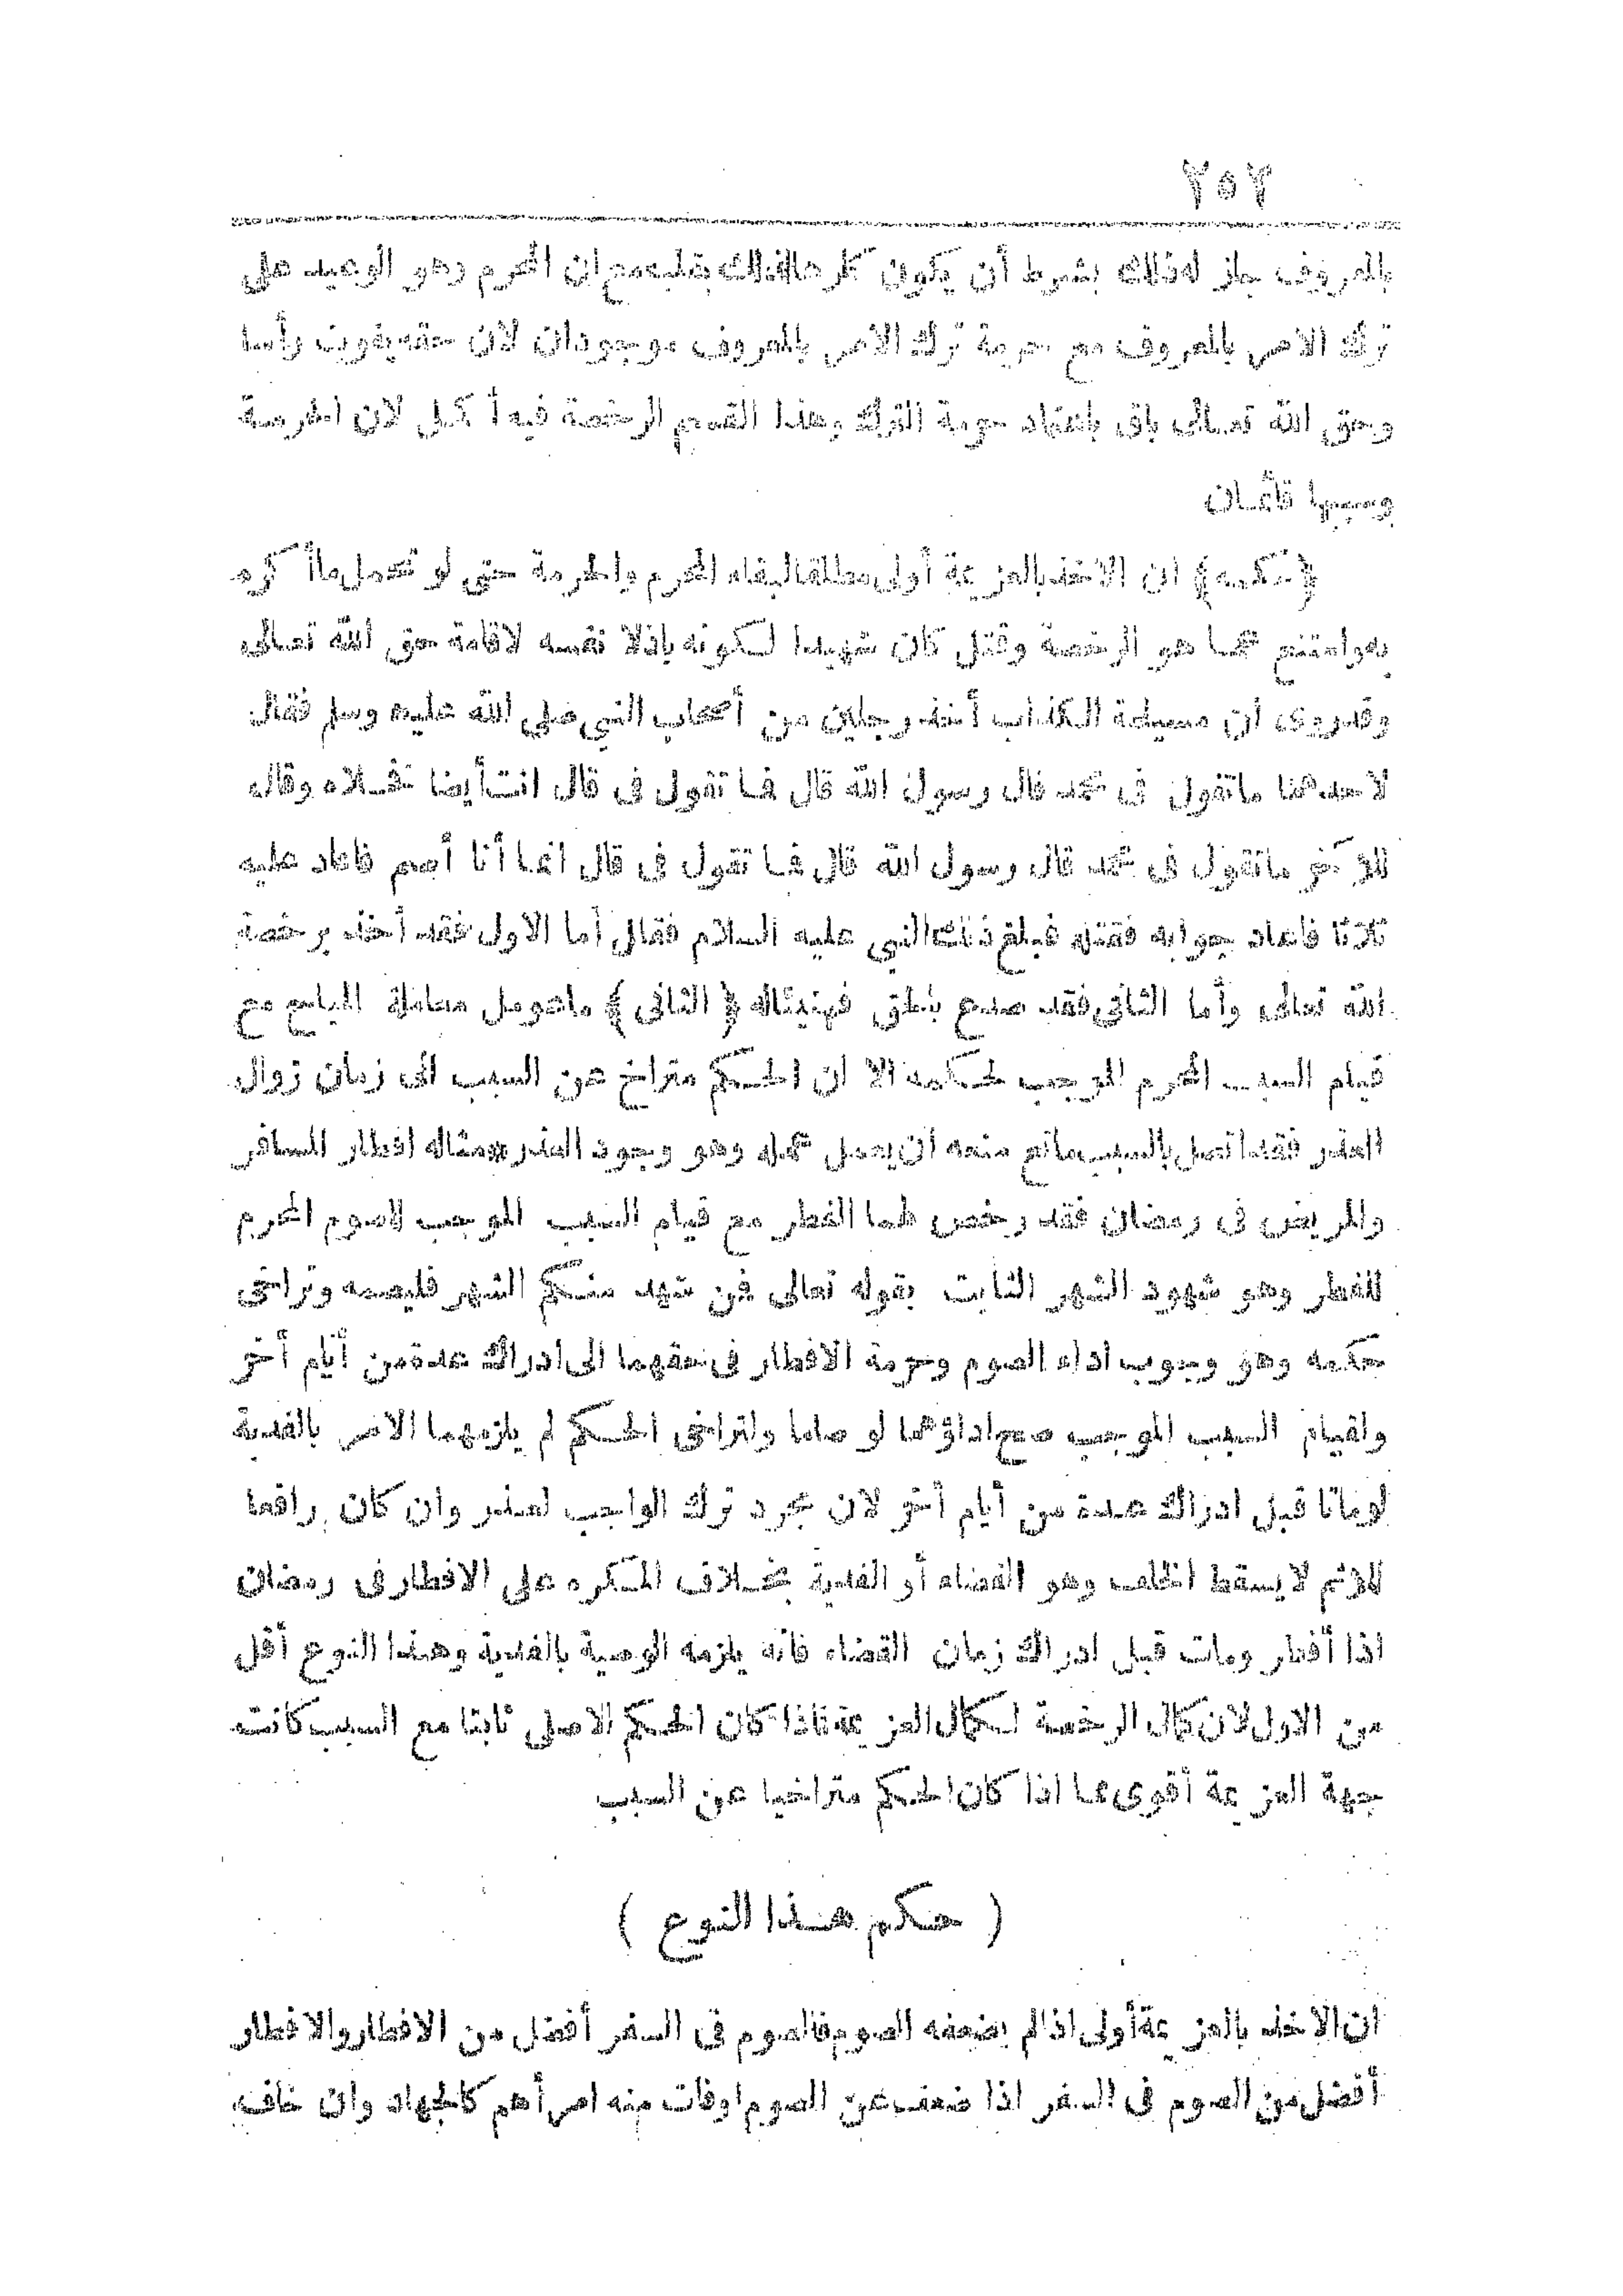 ٢٥٢
بالمعروف جاز له ذلك بشرط أن يكون كارها لذلك بقلبه مع ان المحرم وهو الوعيد على
ترك الامر بالمعروف مع حرمة ترك الامر بالمعروف موجودان لان حقه يفوت رأسا
وحق الله تعالى باق باعتقاد حرمة الترك وهذا القسم الرخصة فيه أكمل لان الحرمة
وسببها قائمان
﴿حكمه﴾ ان الاخذ بالعزيمة أولى مطلقا لبقاء المحرم والحرمة حتى لو تحمل ما أكره
به وامتنع عما هو الرخصة وقتل كان شهيدا لكونه باذلا نفسه لاقامة حق الله تعالى
وقد روى ان مسيلمة الكذاب أخذ رجلين من أصحاب النبي صلى الله عليه وسلم فقال
لاحدهما ما تقول فى محمد قال رسول الله قال فما تقول فى قال انت أيضا فخلاه وقال
للآخر ما تقول فى محمد قال رسول الله قال فما تقول فى قال انما أنا أصم فاعاد عليه
ثلاثا فاعاد جوابه فقتله فبلغ ذلك النبي عليه السلام فقال أما الاول فقد أخذ برخصة
الله تعالى وأما الثانى فقد صدع بالحق فهنيئا له ﴿الثانى﴾ ما عومل معاملة المباح مع
قيام السبب المحرم الموجب لحكمه الا ان الحكم متراخ عن السبب الى زمان زوال
العذر فقد اتصل بالسبب مانع منعه ان يعمل عمله وهو وجود العذر * مثاله افطار المسافر
والمريض فى رمضان فقد رخص لهما الفطر مع قيام السبب الموجب للصوم المحرم
للفطر وهو شهود الشهر الثابت بقوله تعالى فمن شهد منكم الشهر فليصمه وتراخى
حكمه وهو وجوب اداء الصوم وحرمة الافطار فى حقهما الى ادراك عدة من أيام أخر
ولقيام السبب الموجب صح اداؤهما لو صاما ولتراخى الحكم لم يلزمهما الامر بالفدية
لو ماتا قبل ادراك عدة من أيام أخر لان مجرد ترك الواجب لعذر وان كان رافعا
للاثم لا يسقط الخلف وهو القضاء أو الفدية بخلاف المكره على الافطار فى رمضان
اذا أفطر ومات قبل ادراك زمان القضاء فانه يلزمه الوصية بالفدية وهذا النوع أقل
من الاول لان كمال الرخصة لكمال العزيمة فاذا كان الحكم الاصلى ثابتا مع السبب كانت
جهة العزيمة أقوى مما اذا كان الحكم متراخيا عن السبب
( حكم هذا النوع )
ان الاخذ بالعزيمة أولى اذا لم يضعفه الصوم فالصوم فى السفر أفضل من الافطار والافطار
أفضل من الصوم فى السفر اذا ضعف عن الصوم او فات منه امر أهم كالجهاد وان خاف